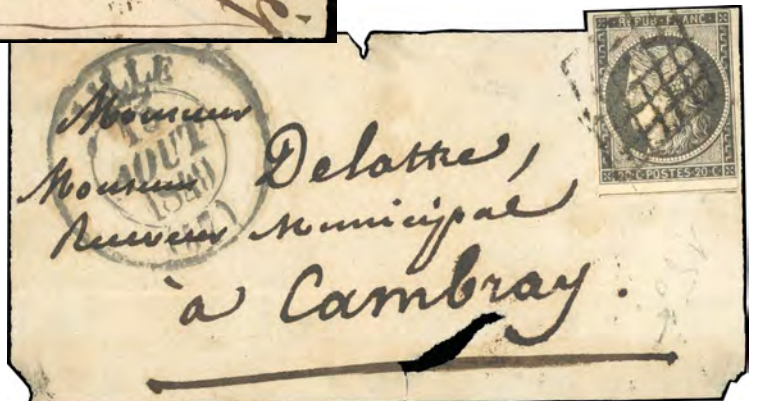 REPUB. FRANC.
20 C POSTES 20 C
LILLE
AOUT
Monsieur
Monsieur Delattre,
Receveur Municipal
à Cambray.